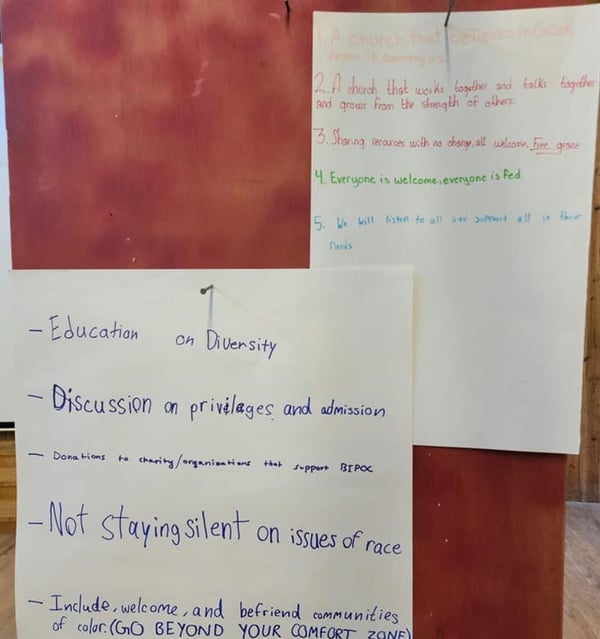 1. A church that believes in God,
Jesus is among us
2. A church that works together and talks together
and grows from the strength of others.
3. Sharing resources with no charge, all welcome, Free grace
4. Everyone is welcome, everyone is fed
5. We will listen to all and support all in their
needs
– Education on Diversity
– Discussion on privileges and admission
– Donations to charity/organizations that support BIPOC
– Not staying silent on issues of race
– Include, welcome, and befriend communities
of color. (GO BEYOND YOUR COMFORT ZONE)